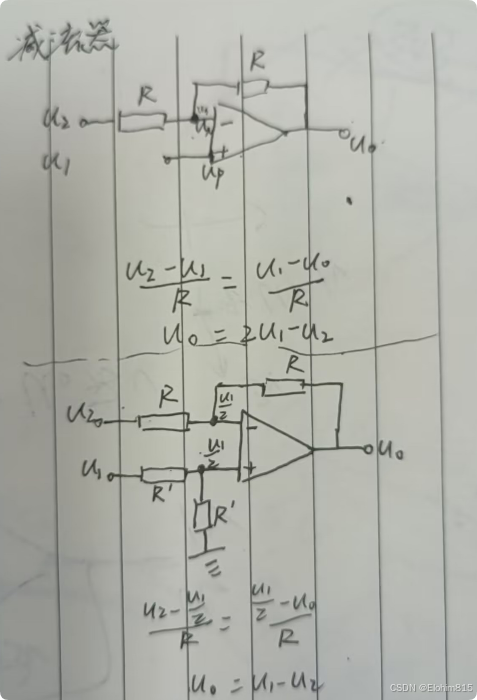 减法器
R
R
u₂
u₁
uₙ
−
+
uₚ
u₀
(u₂ − u₁)/R = (u₁ − u₀)/R
u₀ = 2u₁ − u₂
R
R
u₂
u₁/2
−
u₁
u₁/2
+
u₀
R'
R'
(u₂ − u₁/2)/R = (u₁/2 − u₀)/R
u₀ = u₁ − u₂
CSDN @Elohim815